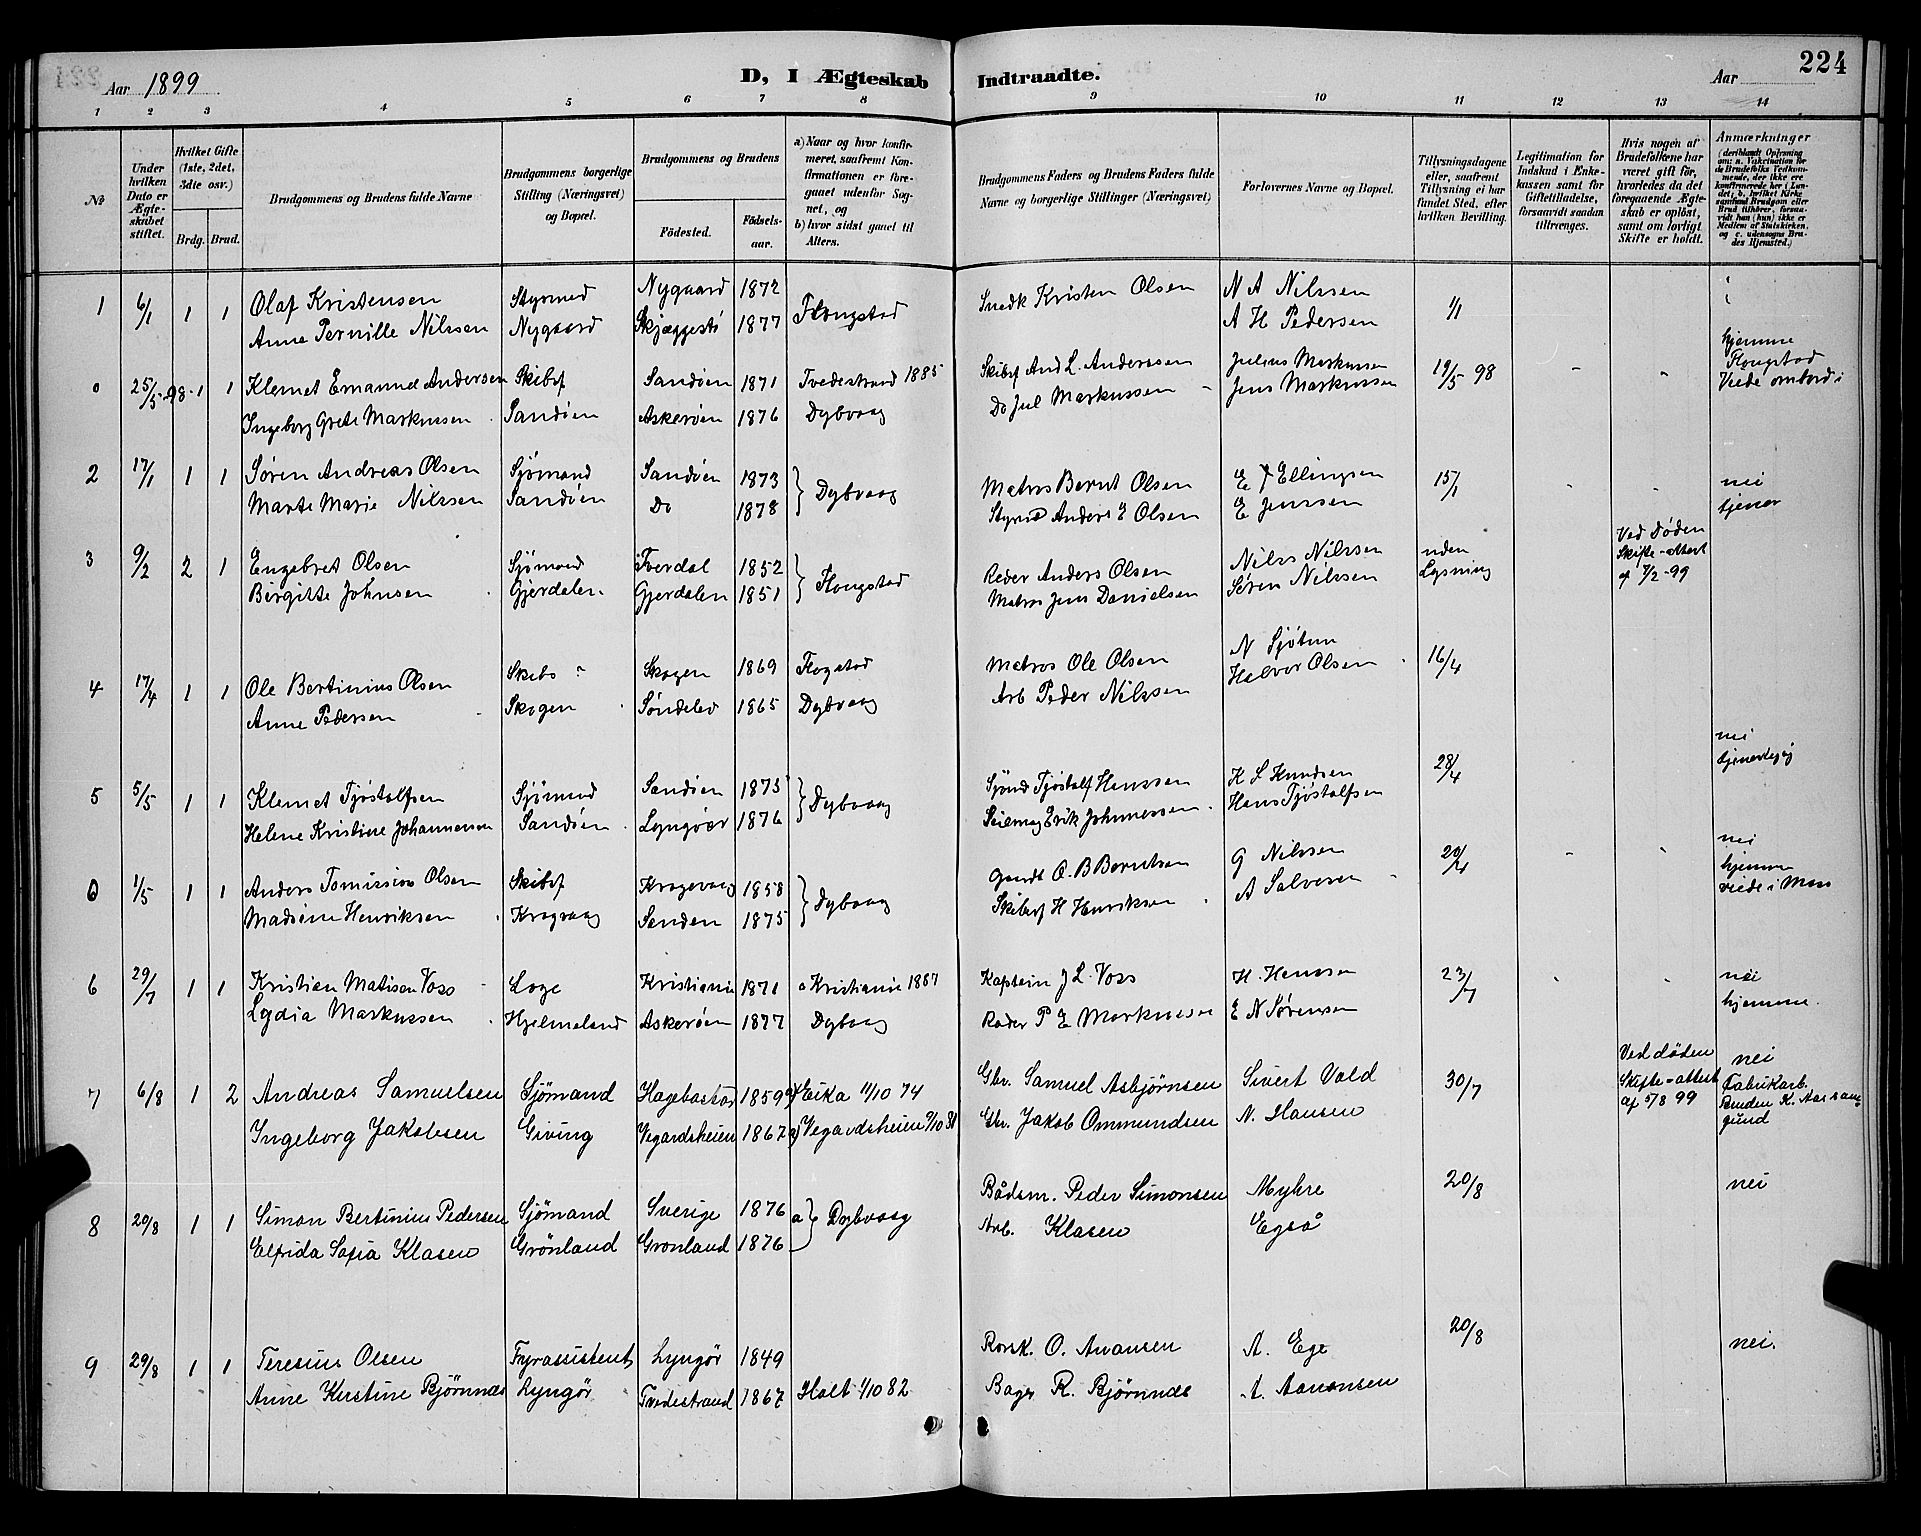 Aar 1899
D, I Ægteskab Indtraadte.
Aar
224
1 2 3 4 5 6 7 8 9 10 11 12 13 14
№
Under hvilken Dato er Ægteskabet stiftet.
Hvilket Gifte (1ste, 2det, 3die osv.)
Brdg. Brud.
Brudgommens og Brudens fulde Navne
Brudgommens borgerlige Stilling (Næringsvei) og Bopæl.
Brudgommens og Brudens
Fødested.
Fødselsaar.
a) Naar og hvor konfirmeret, saafremt Konfirmationen er foregaaet udenfor Sognet, og
b) hvor sidst gaaet til Alters.
Brudgommens Faders og Brudens Faders fulde Navne og borgerlige Stillinger (Næringsvei)
Forlovernes Navne og Bopæl.
Tillysningsdagene eller, saafremt Tillysning ei har fundet Sted, efter hvilken Bevilling.
Legitimation for Indskud i Enkekassen samt for Giftetilladelse, forsaavidt saadan tiltrænges.
Hvis nogen af Brudefolkene har været gift før, hvorledes da det foregaaende Ægteskab er opløst, samt om lovligt Skifte er holdt.
Anmærkninger
1 6/1 1 1 Olaf Kristensen Styrmd Nygaard 1872 Flougstad Snedk Kristen Olsen N A Nilssen 1/1
Anne Pernille Nilssen Nygaard Skjæggestö 1877 A H Pedersen
hjemme
Flougstad
0 25/5-98 1 1 Klemet Emanuel Andersen Skibsf Sandöen 1871 Tvedestrand 1885 Skibsf And L. Anderssen Julius Markussen 19/5 98 Viede ombord i
Ingeborg Grete Markussen Sandöen Askeröen 1876 Dybvaag Do Jul Markussen Jens Markussen
2 17/1 1 1 Sören Andreas Olsen Sjömand Sandöen 1873 Dybvaag Matros Bernt Olsen E J Ellingsen 15/1 nei
Marte Marie Nilssen Sandöen Do 1878 Styrmd Anders E Olsen E Jenssen tjener
3 9/2 2 1 Engebret Olsen Sjömand Tverdal 1852 Flougstad Reder Anders Olsen Nils Nilssen uden Lysning Ved Döden Skifte-attest af 7/2-99
Birgitte Johnsen Gjerdalen Gjerdalen 1851 Matros Jens Danielsen Sören Nilssen
4 17/4 1 1 Ole Bertinius Olsen Skibs Skogen 1869 Flogstad Matros Ole Olsen N Sjötun 16/4
Anne Pedersen Skogen Söndelev 1865 Dybvaag Arb Peder Nilssen Halvor Olsen
5 5/5 1 1 Klemet Tjöstolfsen Sjömand Sandöen 1875 Dybvaag Sjömd Tjöstolf Hanssen K S Knudsen 28/4 nei
Helene Kristine Johannessen Sandöen Lyngöer 1876 Erik Johnnessen Hans Tjöstolfsen
0 1/5 1 1 Anders Olsen Skibsf Kragevaag 1858 Dybvaag Gaardb O. B Berntsen G Nilssen 20/4 nei
Madsine Henriksen Kragvaag Sanden 1875 Skibsf H Henriksen A Salvesen hjemme
viede i Moss
6 29/7 1 1 Kristian Matisen Voss Loge Kristiania 1871 a Kristiania 1887 Kaptein J L. Voss H. Hanssen 23/7 nei
Lydia Markussen Hjelmeland Askeröen 1877 Dybvaag Reder P E Markussen E N Sörensen hjemme.
7 6/8 1 2 Andreas Samuelsen Sjömand Hagebostad 1859 a) Eika 11/10 74 Gbr. Samuel Asbjørnsen Sivert Vold 30/7 Ved döden Skifte-attest af 5/8 99 nei
Ingeborg Jakobsen Giving Vegardsheien 1867 a) Vegardsheien 1/10 81 Gbr. Jakob Ommundsen N. Hansen Fabrikarb. Bruden K. Aas sangund
8 20/8 1 1 Simon Bertinius Pedersen Sjömand Sverige 1876 a Dybvaag Bådsm. Peder Simonsen Myhre 20/8 nei
Elfrida Sofia Klasen Grönland Grönland 1876 Arb. Klasen Egså
9 29/8 1 1 Teresius Olsen Fyrassistent Lyngör 1849 O. Anansen A. Ege 20/8 nei.
Anne Kirstine Bjørnnes Lyngör Tvedestrand 1867 Holt 1/10 82 Bager R. Bjørnnes A. Aanonsen